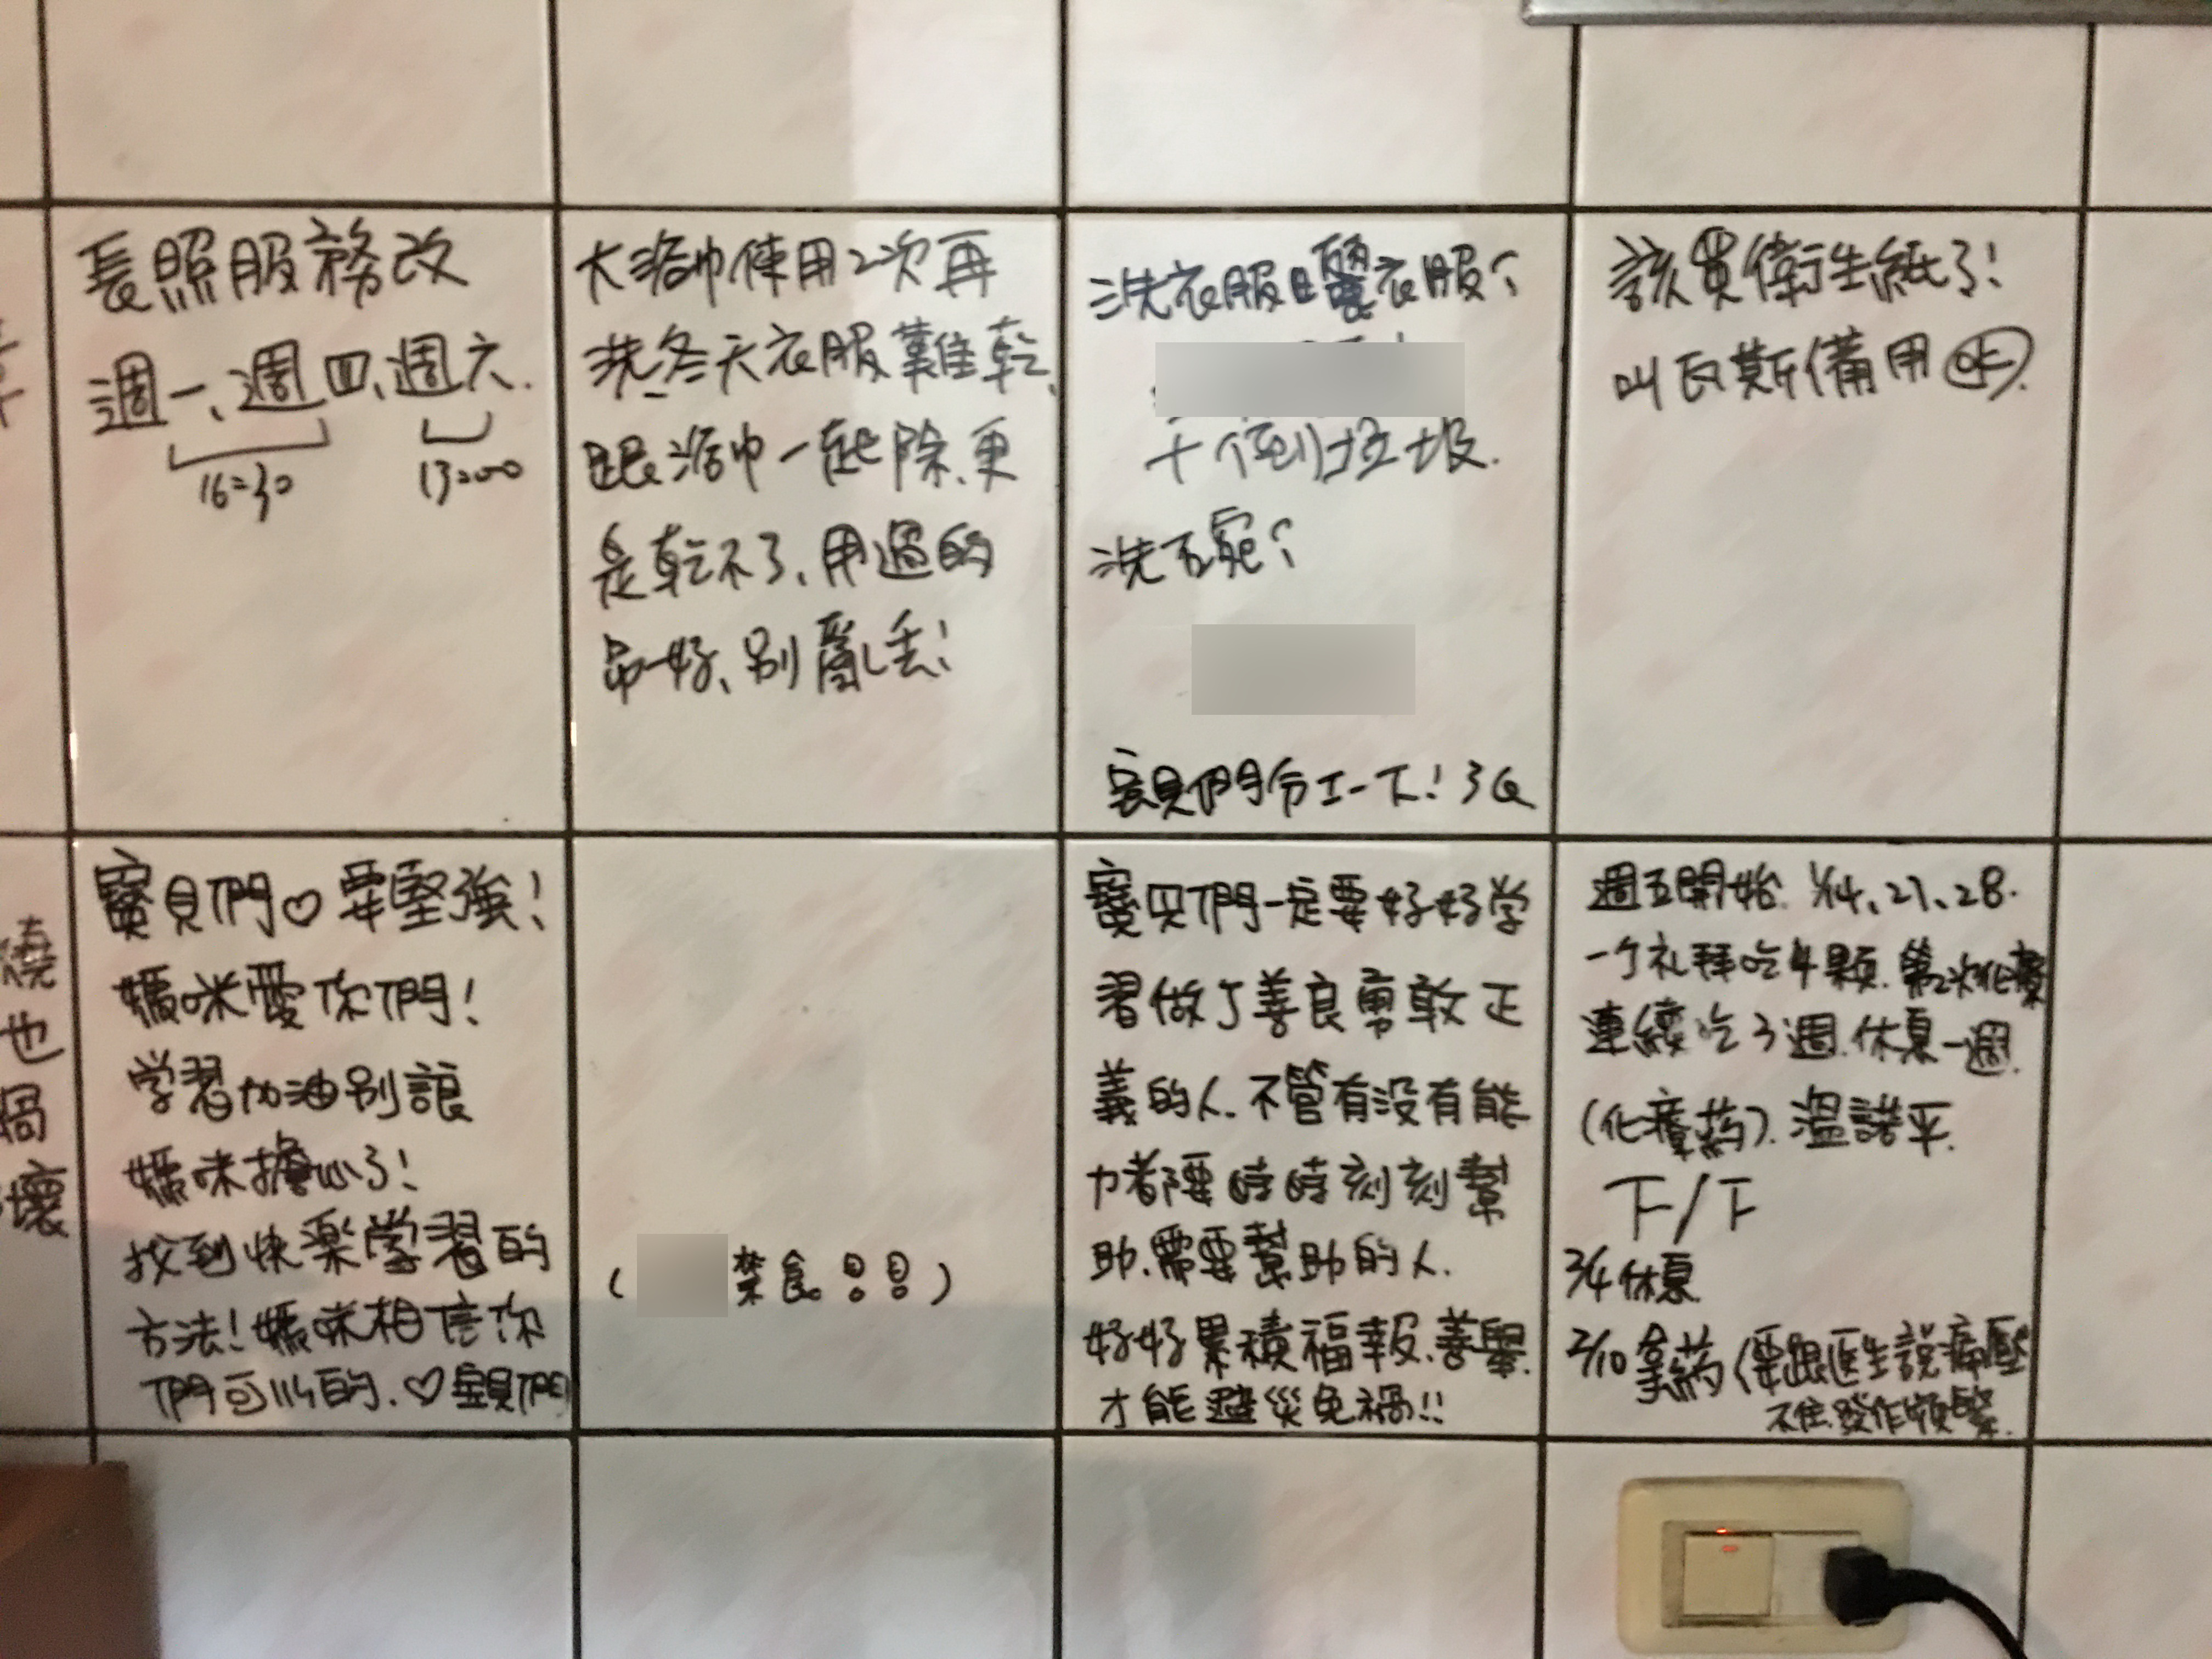 長照服務改
週一、週四、週六.
16:30
13:00
大浴巾使用2次再
洗.冬天衣服難乾,
跟浴巾一起除.更
是乾不了、用過的
吊好、別亂丟!
洗衣服曬衣服?
倒垃圾.
洗碗?
寶貝們分工一下!3Q
該買衛生紙了!
叫瓦斯備用 OK.
繞
也
禍
壞
寶貝們♡要堅強!
媽咪愛你們!
学習加油別讓
媽咪擔心了!
找到快樂学習的
方法!媽咪相信你
們可以的.♡寶貝們
( 禁食。!!)
寶貝們一定要好好学
習做了善良勇敢正
義的人.不管有沒有能
力都要時時刻刻幫
助.需要幫助的人.
好好累積福報.善舉.
才能避災免禍!!
週五開始. 1/14、21、28.
一个礼拜吃4顆.第2次化療
連續吃3週.休息一週.
(化療葯).溫諾平.
下/下
2/4休息
2/10拿葯(要跟医生說痛壓
不住.發作頻繁.